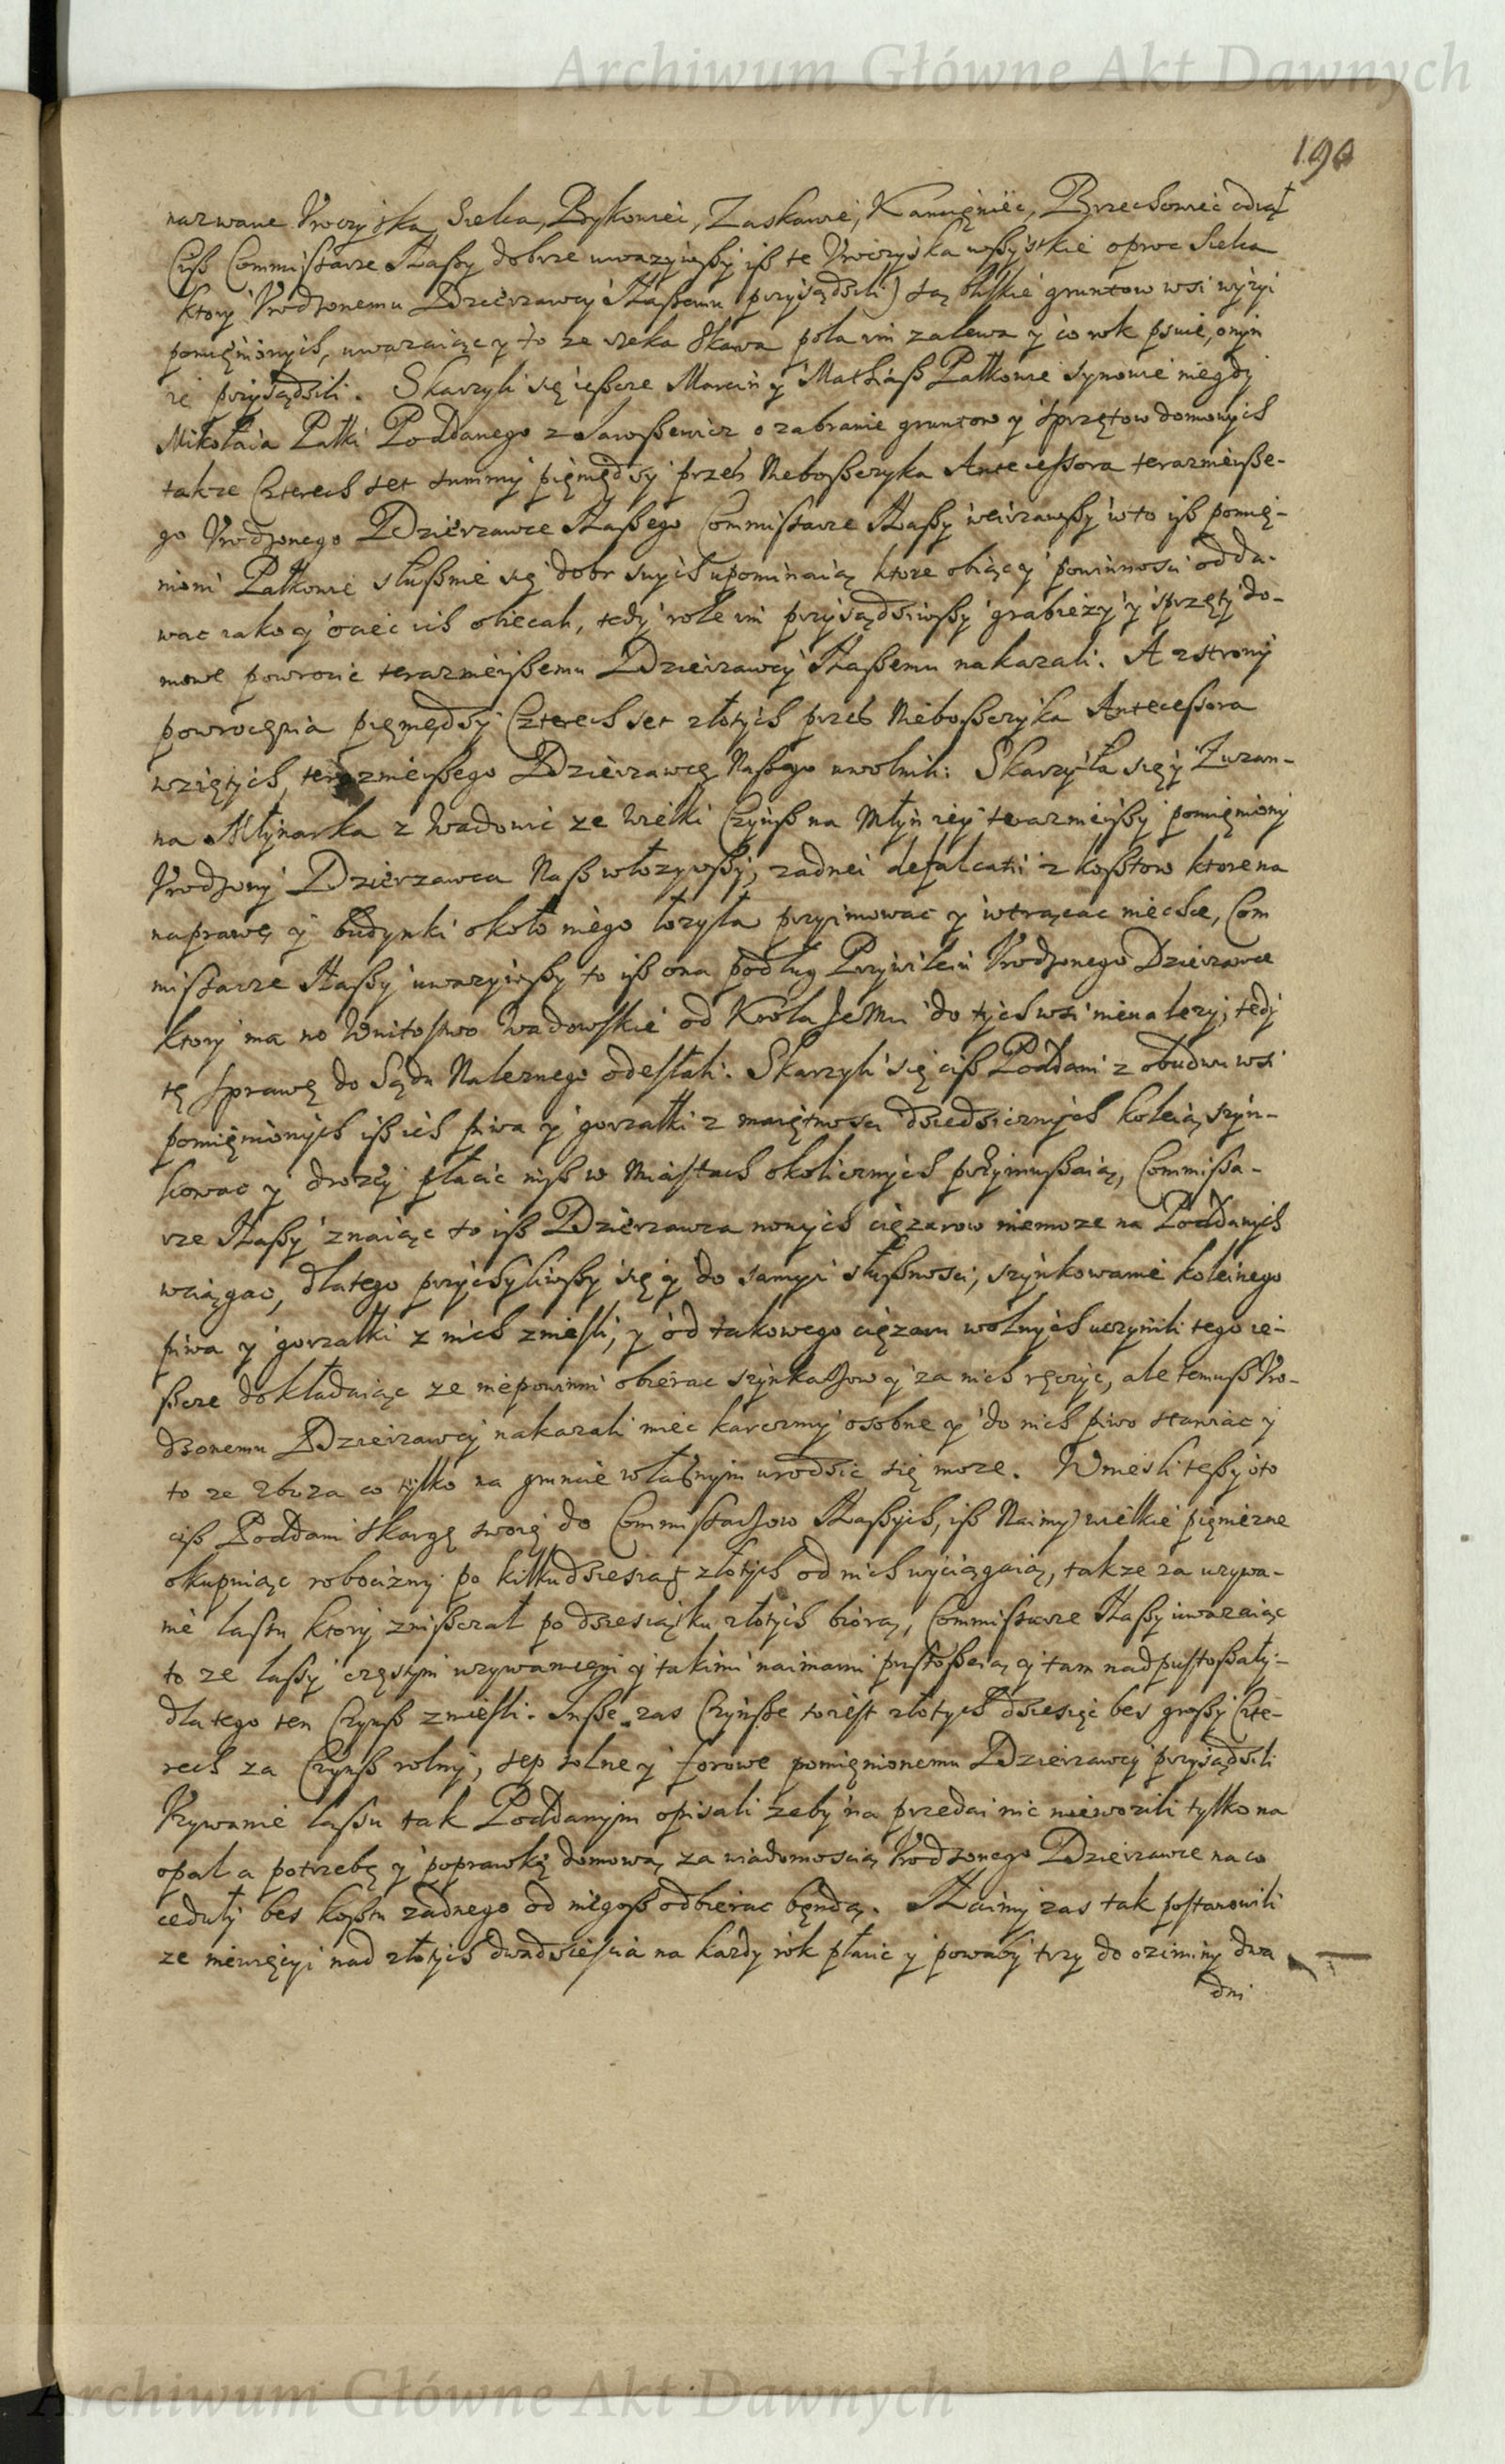 Archiwum Główne Akt Dawnych
190
nazwane Uroczyska Sielca, Bykowiec, Zaskawie, Kamięniec, Brzechowiec odiął
Ciß Commissarze Naßy dobrze uwazywßy iß te Uroczyska wßystkie oproc Sielca
ktory Urodzonemu Dzierzawcy Naßemu przysądzili) są bliskie gruntow wsi wyzyi
pomięnionych, uwazaiąc y to ze rzeka Skawa pola im zalewa y co rok psuie, onym
ie przysądzili. Skarzyli się ießcze Marcin y Mathiaß Pałkowie synowie niegdy
Mikołaia Pałki Poddanego z o zabranie gruntow y sprzętow domowych
takze Czterech set summy pięniędzy przeß Nieboßczyka Antecessora terazniewyße-
go Urodzonego Dzierzawce Naßego Commissarze Naßy weirzawßy w to iß pomię-
nioni Pałkowie słußnie się dobr swych upominaią ktore obiący powinnosci odda-
wac iako y ociec ich obiecali, tedy role im przysądziwßy grabiezy y sprzęty do-
mowe powrocic teraznieyßemu Dzierzawcy Naßemu nakazali. A z strony
powrocęnia pięniędzy Czterech set złotych przeß Nieboßczyka Antecessora
wziętych, teraznieyßego Dzierzawcę Naßego uwolnili: Skarzyła się y Zuzan-
na Młynarka z Wadowic ze wielki Czynß na Młyn iey teraznieyßy pomięniony
Urodzony Dzierzawca Naß włozywßy, zadnei defalcatii z koßtow ktore na
naprawę y budynki około niego łozyła przyimowac y wtrącac niechce, Com
missarze Naßy uwazywßy to iß ona podług Przywileiu Urodzonego Dzierzawce
ktory ma na Woitostwo Wadowskie od Krola JeMci do tych wsi nienalezy, tedy
tę sprawę do Sądu Naleznego odesłali. Skarzyli się ciß Poddani z obudwu wsi
pomięnionych iß ich piwa y gorzałki z maiętnosci dziedzicznych koleią szyn-
kowac y drozey płacic niß w Miastach okolicznych przymußaią, Commissa-
rze Naßy znaiąc to iß Dzierzawca nowych ciężarow niemoze na Poddanych
wciągac, dlatego przychyliwßy się y do samyi słußnosci, szynkowanie koleinego
piwa y gorzałki z nich zniesli, y od takowego ciężaru wolnych uczynili tego ie-
ßcze dokładaiąc ze niepowinni obierac szynkarzow y za nich ręczyc, ale temuß Uro-
dzonemu Dzierzawcy nakazali miec karczmy osobne y do nich piwo stawiac y
to ze zboza co tylko na gruncie własnym urodzic się moze. Wniesli teßy o to
ciß Poddani skargę swoię do Commissarzow Naßych, iß Naimy wielkie pięniezne
okupuiąc robocizny po kilkudziesiąt złotych od nich wyciągaią, takze za uzywa-
nie lassu ktory znißczał po dziesiątku złotych biorą, Commissarze Naßy uwazaiąc
to ze lassy częstym uzywanięm y takimi naimami pustoßeią y tam nadpustoßały-
dlatego ten Czynß zniesli. Inße zas Czynße toiest złotych dziesięc bes großy Czte-
rech za Czynß rolny, sep solne y forowe pomięnionemu Dzierzawcy przysądzili
Uzywanie lassu tak Poddanym opisali zeby na przedai nic niewozili tylko na
opał a potrzebę y poprawkę domową za wiadomoscią Urodzonego Dzierzawce na co
ceduły bes koßtu zadnego od niegoß odbierac będą. Naimy zas tak postanowili
ze niewięcyi nad złotych dwadziescia na kazdy rok płacic y powaby trzy do oziminy dwa
dni
Archiwum Główne Akt Dawnych